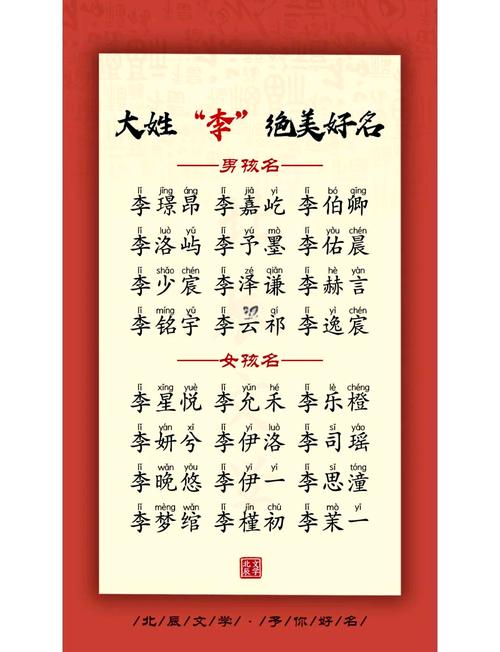 大姓“李”绝美好名
男孩名
lǐ jǐng áng lǐ jiā yì lǐ bó qīng
李璟昂 李嘉屹 李伯卿
lǐ luò yǔ lǐ yú mò lǐ yòu chén
李洛屿 李予墨 李佑晨
lǐ shǎo chén lǐ zé qiān lǐ hè yán
李少宸 李泽谦 李赫言
lǐ míng yǔ lǐ qí lǐ yì chén
李铭宇 李云祁 李逸宸
女孩名
lǐ xīng yuè lǐ yǔn hé lǐ lè chéng
李星悦 李允禾 李乐橙
lǐ yán xī lǐ yī luò lǐ sī yáo
李妍兮 李伊洛 李司瑶
lǐ wǎn yōu lǐ yī yī lǐ sī tóng
李晚悠 李伊一 李思潼
lǐ mèng wǎn lǐ jǐn chū lǐ mò yī
李梦绾 李槿初 李茉一
北辰文学
/北/辰/文/学/·/予/你/好/名/